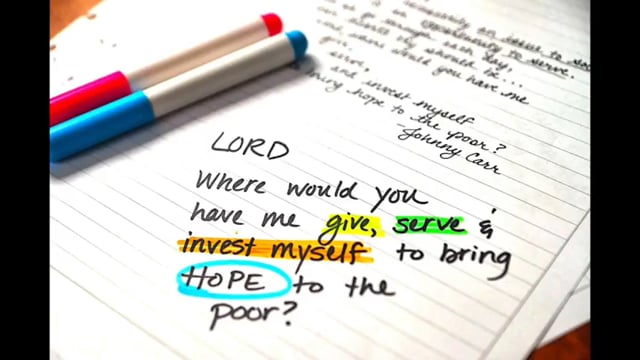 an issue to
opportunity to serve.
enough each day,
they should be...
would you have me
serve
and invest myself
bring hope to the poor?
-Johnny Carr
LORD
Where would you
have me give, serve &
invest myself to bring
HOPE to the
poor?